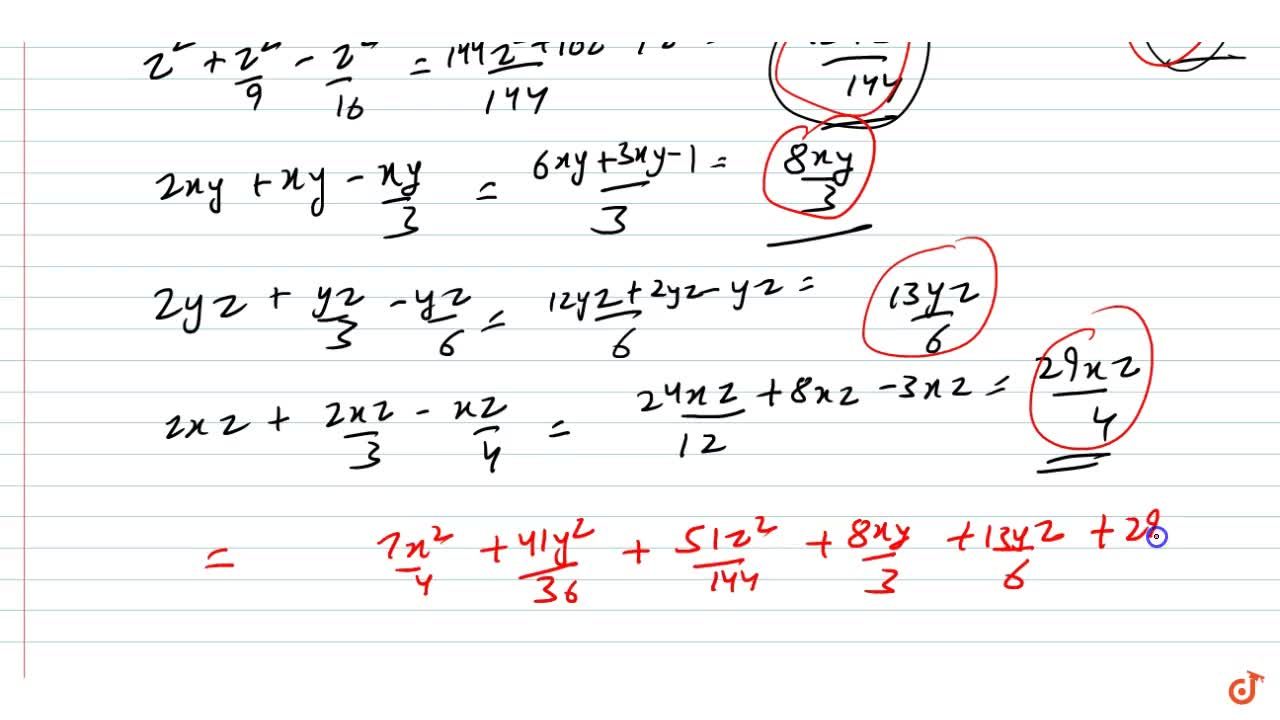 z² + z²/9 - z²/16 = 144z² + 16z² /144 = /144
2xy + xy - xy/3 = 6xy + 3xy - 1/3 = 8xy/3
2yz + yz/3 - yz/6 = 12yz + 2yz - yz/6 = 13yz/6
2xz + 2xz/3 - xz/4 = 24xz/12 + 8xz - 3xz = 29xz/4
= 7x²/4 + 41y²/36 + 51z²/144 + 8xy/3 + 13yz/6 + 29